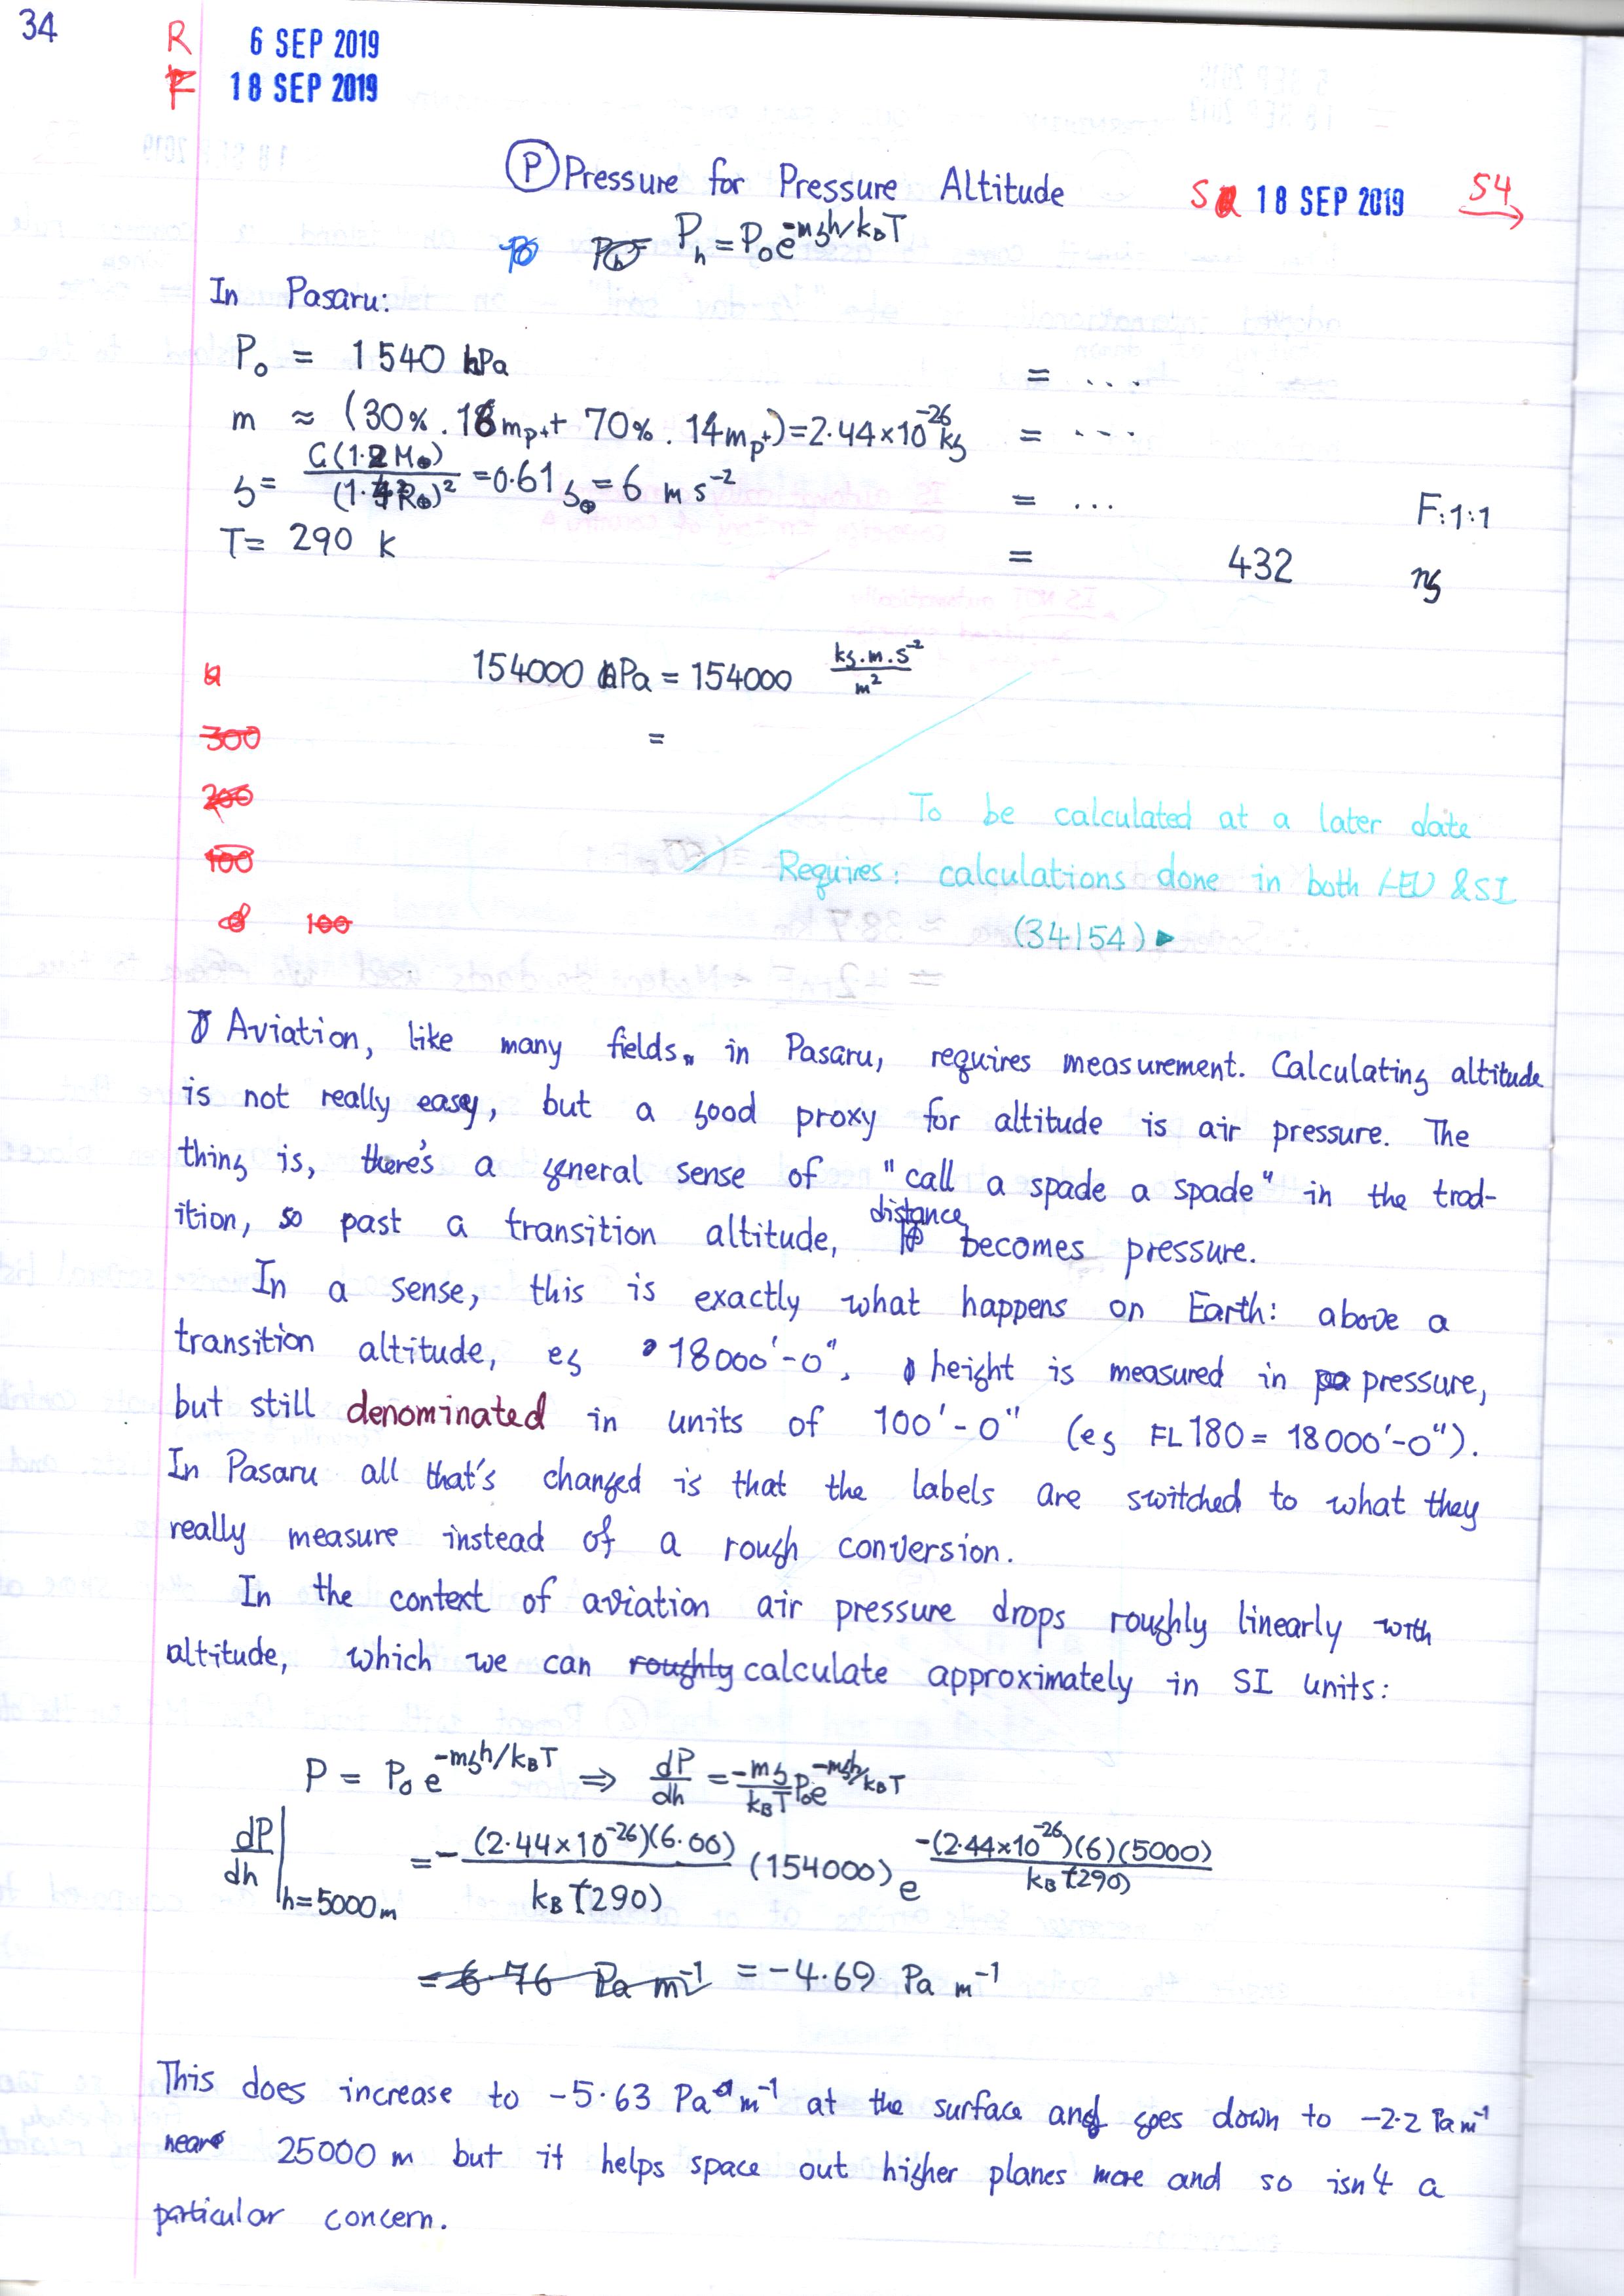 34
R 6 SEP 2019
F 18 SEP 2019
P Pressure for Pressure Altitude
S 18 SEP 2019 54
P_h = P_0 e^{-mgh/k_BT}
In Pasaru:
P_0 = 1540 hPa = ...
m ≈ (30% . 16m_{p+} + 70% . 14m_{p+}) = 2.44×10^{-26} kg = ...
g = G(1.2 M_⊕)/(1.4 R_⊕)² = 0.61 g_⊕ = 6 m s^{-2} = ... F:1:1
T = 290 K = 432 ng
154000 Pa = 154000 kg.m.s^{-2}/m²
300 =
200
100
100
To be calculated at a later date
Requires: calculations done in both LEU & SI
(34|54) ▶
Aviation, like many fields in Pasaru, requires measurement. Calculating altitude
is not really easy, but a good proxy for altitude is air pressure. The
thing is, there's a general sense of "call a spade a spade" in the trad-
ition, so past a transition altitude, distance becomes pressure.
In a sense, this is exactly what happens on Earth: above a
transition altitude, eg 18000'-0", height is measured in pressure,
but still denominated in units of 100'-0" (eg FL180 = 18000'-0").
In Pasaru all that's changed is that the labels are switched to what they
really measure instead of a rough conversion.
In the context of aviation air pressure drops roughly linearly with
altitude, which we can roughly calculate approximately in SI units:
P = P_0 e^{-mgh/k_BT} ⇒ dP/dh = -mg/k_BT P_0 e^{-mgh/k_BT}
dP/dh |_{h=5000m} = - (2.44×10^{-26})(6.00)/k_B(290) (154000) e^{-(2.44×10^{-26})(6)(5000)/k_B(290)}
= 6.76 Pa m^{-1} = -4.69 Pa m^{-1}
This does increase to -5.63 Pa m^{-1} at the surface and goes down to -2.2 Pa m^{-1}
near 25000 m but it helps space out higher planes more and so isn't a
particular concern.